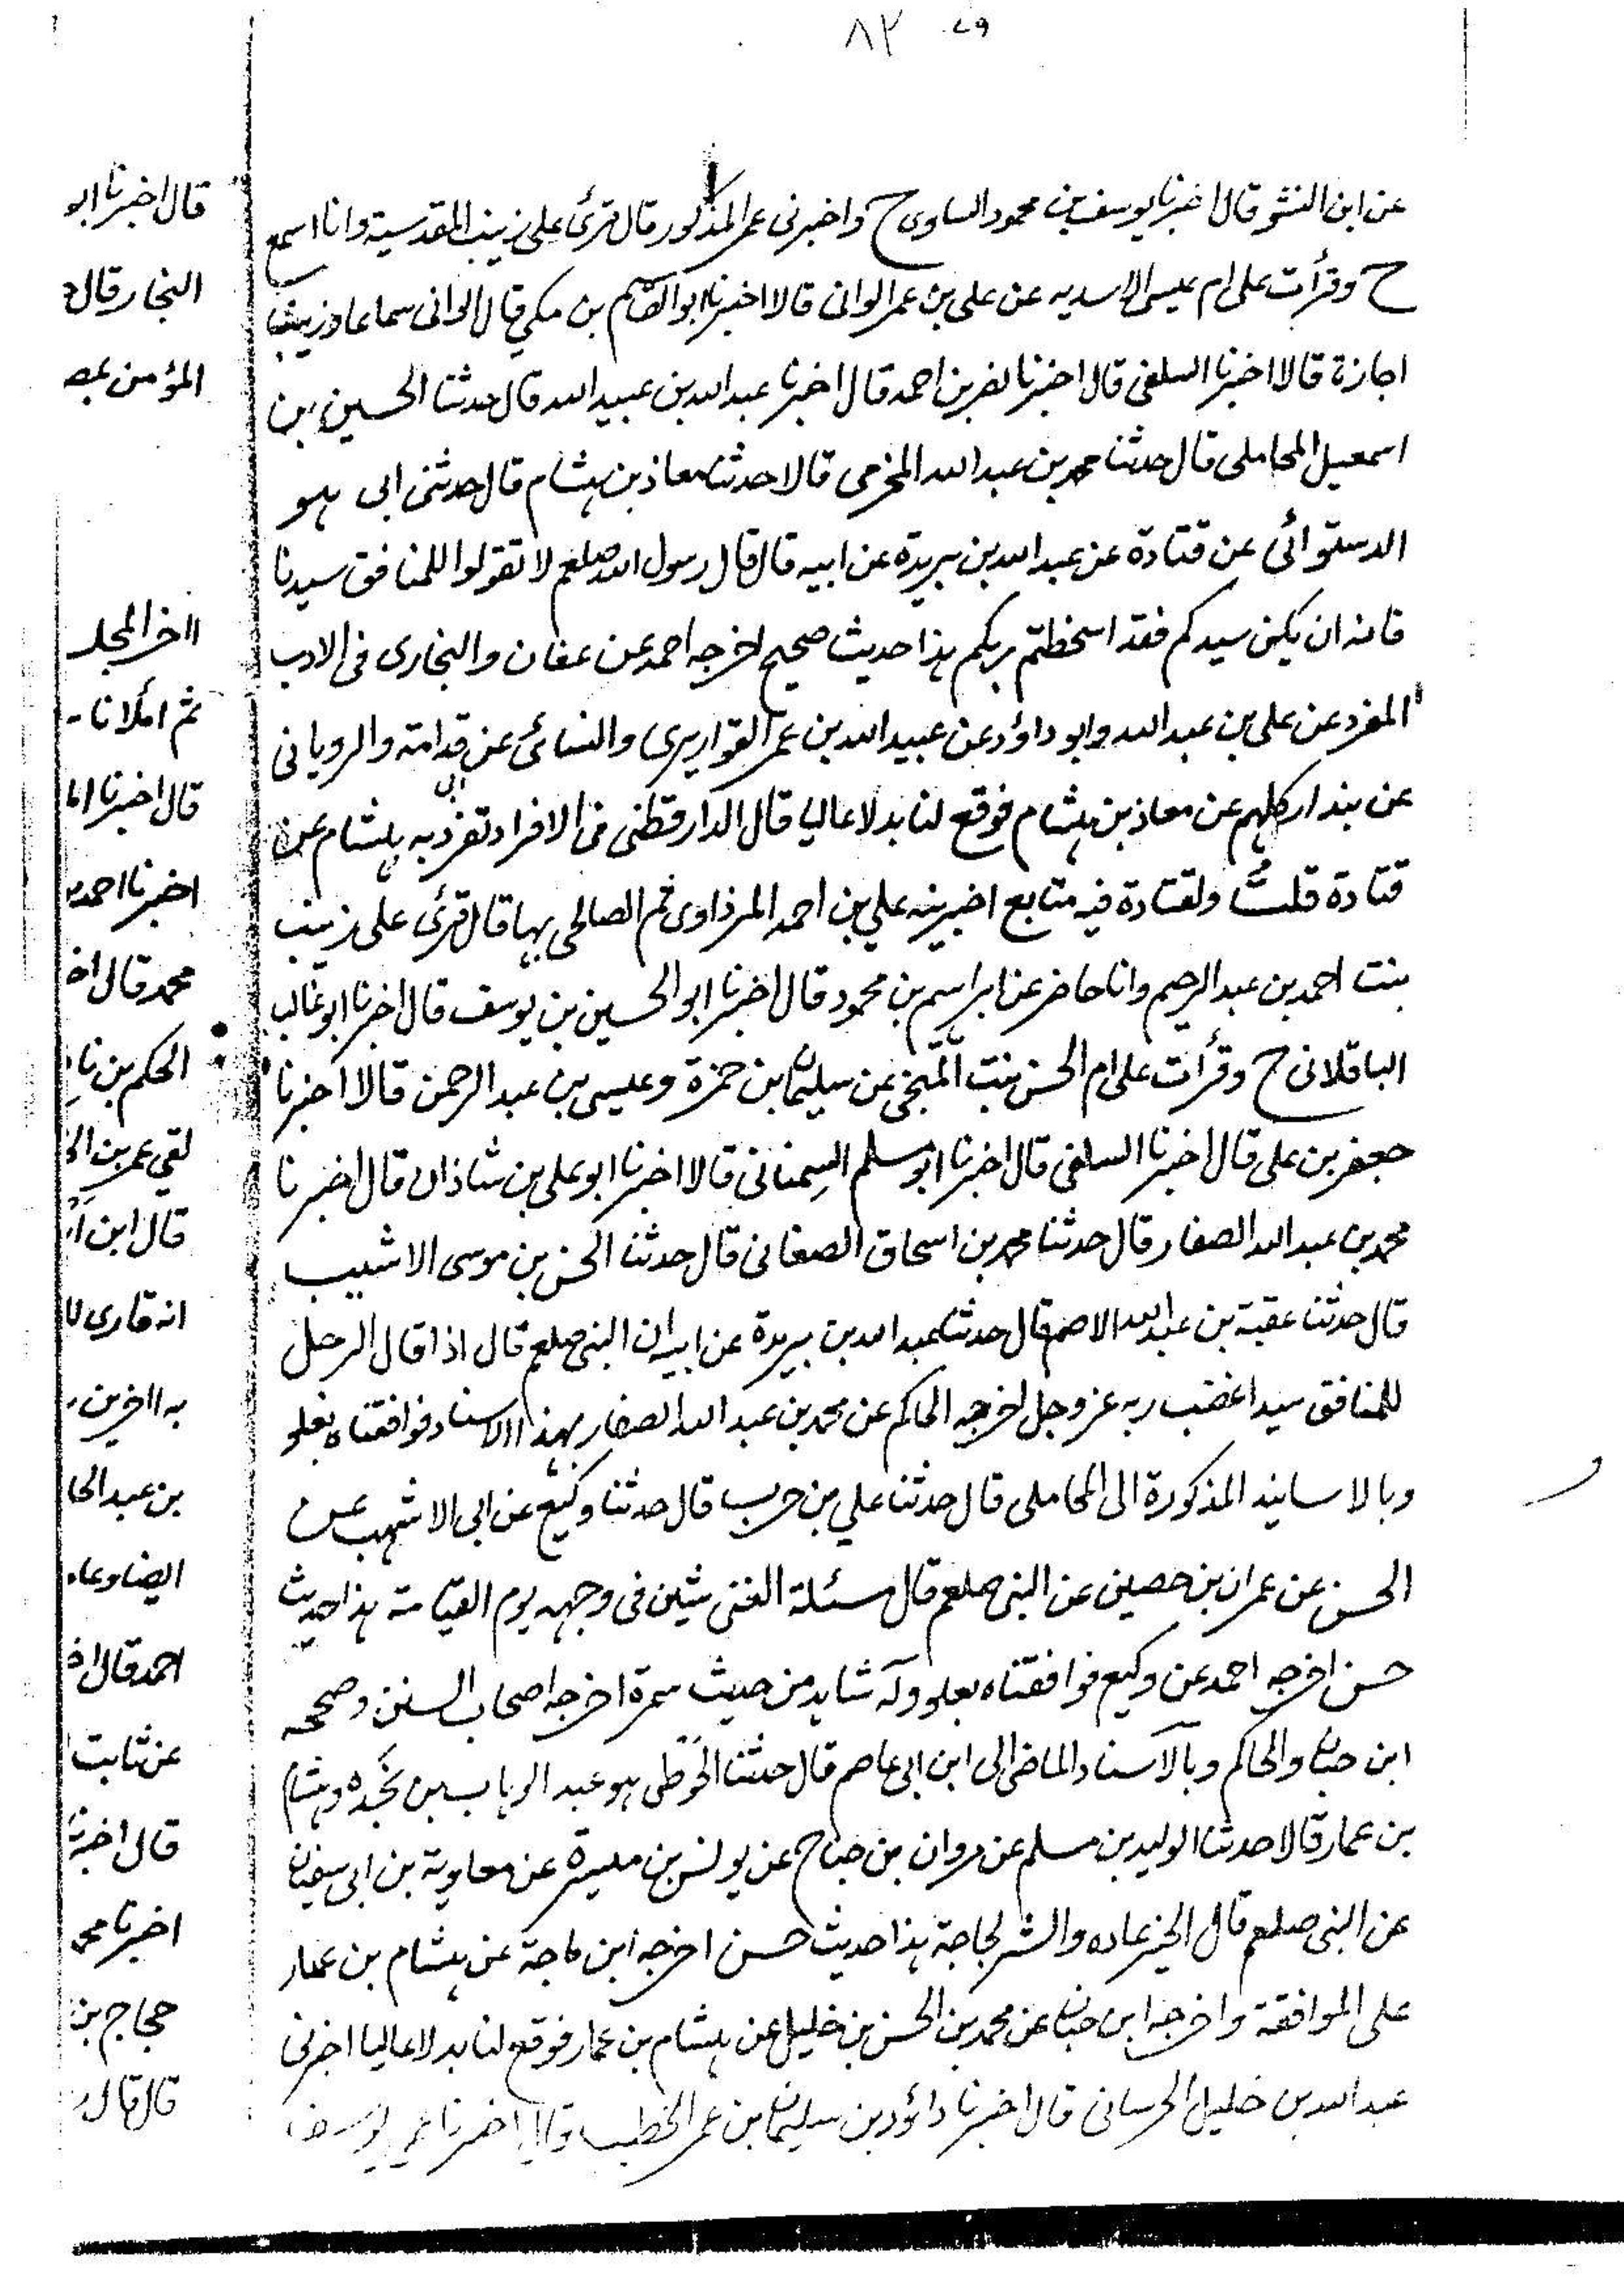 ٨٢ ٧٩
عن ابن النشو قال اخبرنا يوسف بن محمود الساوى ح واخبرنى عمر المذكور قال قرئ على زينب المقدسية وانا اسمع
ح وقرأت على ام عيسى الاسديه عن على بن عمر الوانى قالا اخبرنا ابو القاسم بن مكي قال الوانى سماعا وزينب
اجازة قالا اخبرنا السلفى قال اخبرنا نصر بن احمد قال اخبرنا عبد الله بن عبيد الله قال حدثنا الحسين بن
اسمعيل المحاملى قال حدثنا محمد بن عبد الله المخرمى قالا حدثنا معاذ بن هشام قال حدثنى ابى هو
الدستوائى عن قتادة عن عبد الله بن بريدة عن ابيه قال قال رسول الله صلعم لا تقولوا للمنافق سيدنا
فانه ان يكن سيدكم فقد اسخطتم ربكم هذا حديث صحيح اخرجه احمد عن عفان والبخارى فى الادب
المفرد عن على بن عبد الله وابو داؤد عن عبيد الله بن عمر القواريرى والنسائى عن ابى قدامة والرويانى
عن بندار كلهم عن معاذ بن هشام فوقع لنا بدلا عاليا قال الدارقطنى فى الافراد تفرد به هشام عن
قتادة قلت ولقتادة فيه متابع اخبرنيه علي بن احمد المرداوى ثم الصالحى بها قال قرئ على زينب
بنت احمد بن عبد الرحيم وانا حاضر عن ابراهيم بن محمود قال اخبرنا ابو الحسين بن يوسف قال اخبرنا ابو غالب
الباقلانى ح وقرأت على ام الحسن بنت المنجى عن سليمان بن حمزة وعيسى بن عبد الرحمن قالا اخبرنا
جعفر بن على قال اخبرنا السلفى قال اخبرنا ابو مسلم السمنانى قالا اخبرنا ابو على بن شاذان قال اخبرنا
محمد بن عبد الله الصفار قال حدثنا محمد بن اسحاق الصغانى قال حدثنا الحسن بن موسى الاشيب
قال حدثنا عقبة بن عبد الله الاصم قال حدثنا عبد الله بن بريدة عن ابيه ان النبى صلعم قال اذا قال الرجل
للمنافق سيدا اغضب ربه عز وجل اخرجه الحاكم عن محمد بن عبد الله الصفار بهذا الاسناد فوافقناه بعلو
وبالاسانيد المذكورة الى المحاملى قال حدثنا علي بن حرب قال حدثنا وكيع عن ابى الاشهب عن
الحسن عن عمران بن حصين عن النبى صلعم قال مسئلة الغنى شين فى وجهه يوم القيامة هذا حديث
حسن اخرجه احمد عن وكيع فوافقناه بعلو وله شاهد من حديث سمرة اخرجه اصحاب السنن وصححه
ابن حبان والحاكم وبالاسناد الماضى الى ابن ابى عاصم قال حدثنا الحوطى هو عبد الوهاب بن نجده وهشام
بن عمار قالا حدثنا الوليد بن مسلم عن مروان بن جناح عن يونس بن ميسرة عن معاوية بن ابى سفيان
عن النبى صلعم قال الخير عاده والشر لجاجة هذا حديث حسن اخرجه ابن ماجة عن هشام بن عمار
على الموافقة واخرجه ابن حبان عن محمد بن الحسن بن خليل عن هشام بن عمار فوقع لنا بدلا عاليا اخبرنى
عبد الله بن خليل الحرسانى قال اخبرنا داؤد بن سليمان بن عمر الخطيب قال اخبرنا عمى يوسف
قال اخبرنا ابو
النجار قال
المؤمن بمصر
اآخر المجلد
ثم املانا
قال اخبرنا
اخبرنا احمد
محمد قال اخ
الحكم بن نا
لقي عمر بن الخ
قال ابن
انه قارى لا
به اآخرين
بن عبد الحا
ايضا وعا
احمد قال اخ
عن ثابت
قال اخبرنا
اخبرنا محمد
حجاج بن
قال قال ر